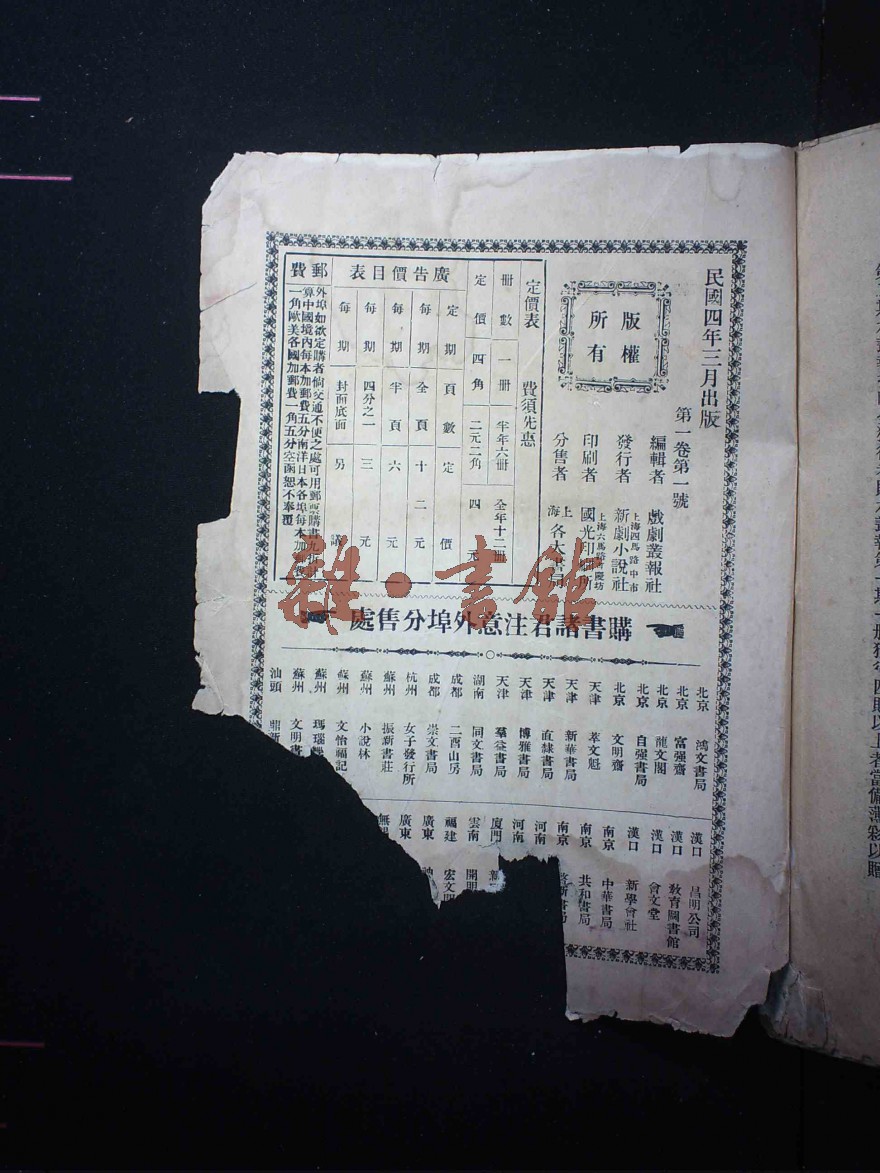 民國四年三月出版
第一卷第一號
版權
所有
編輯者 戲劇叢報社
發行者 上海四馬路中市 新劇小說社
印刷者 上海六馬路 國光印刷所
分售者 上海各大書局
定價表 費須先惠
冊數 一冊 半年六冊 全年十二冊
定價 四角 二元二角 四元
廣告價目表
定期 頁數 定價
每期 全頁 十二元
每期 半頁 六元
每期 四分之一 三元
每期 封面底面 另
郵費
外埠如欲定購者倘交通不便之處可用郵票購書九折計
算中國境內每本加郵費五分南洋日本各埠每本加郵費
一角歐美各國加郵費一角五分空函恕不奉覆
雜·書館
購書諸君注意外埠分售處
北京 鴻文書局
北京 富强齋
北京 龍文閣
北京 自强書局
北京 文明齋
天津 萃文魁
天津 新華書局
天津 直隸書局
天津 博雅書局
天津 羣益書局
湖南 同文書局
成都 二酉山房
成都 崇文書局
杭州 女子發行所
蘇州 振新書莊
蘇州 小說林
蘇州 文怡福記
蘇州 瑪瑙
蘇州 文明書
汕頭 鼎新
漢口 昌明公司
漢口 教育圖書館
漢口 會文堂
漢口 新學會社
南京 中華書局
南京 共和書局
南京 啓新書局
河南
河南
廈門 新
雲南 開明
福建 宏文閣
廣東
廣東
無